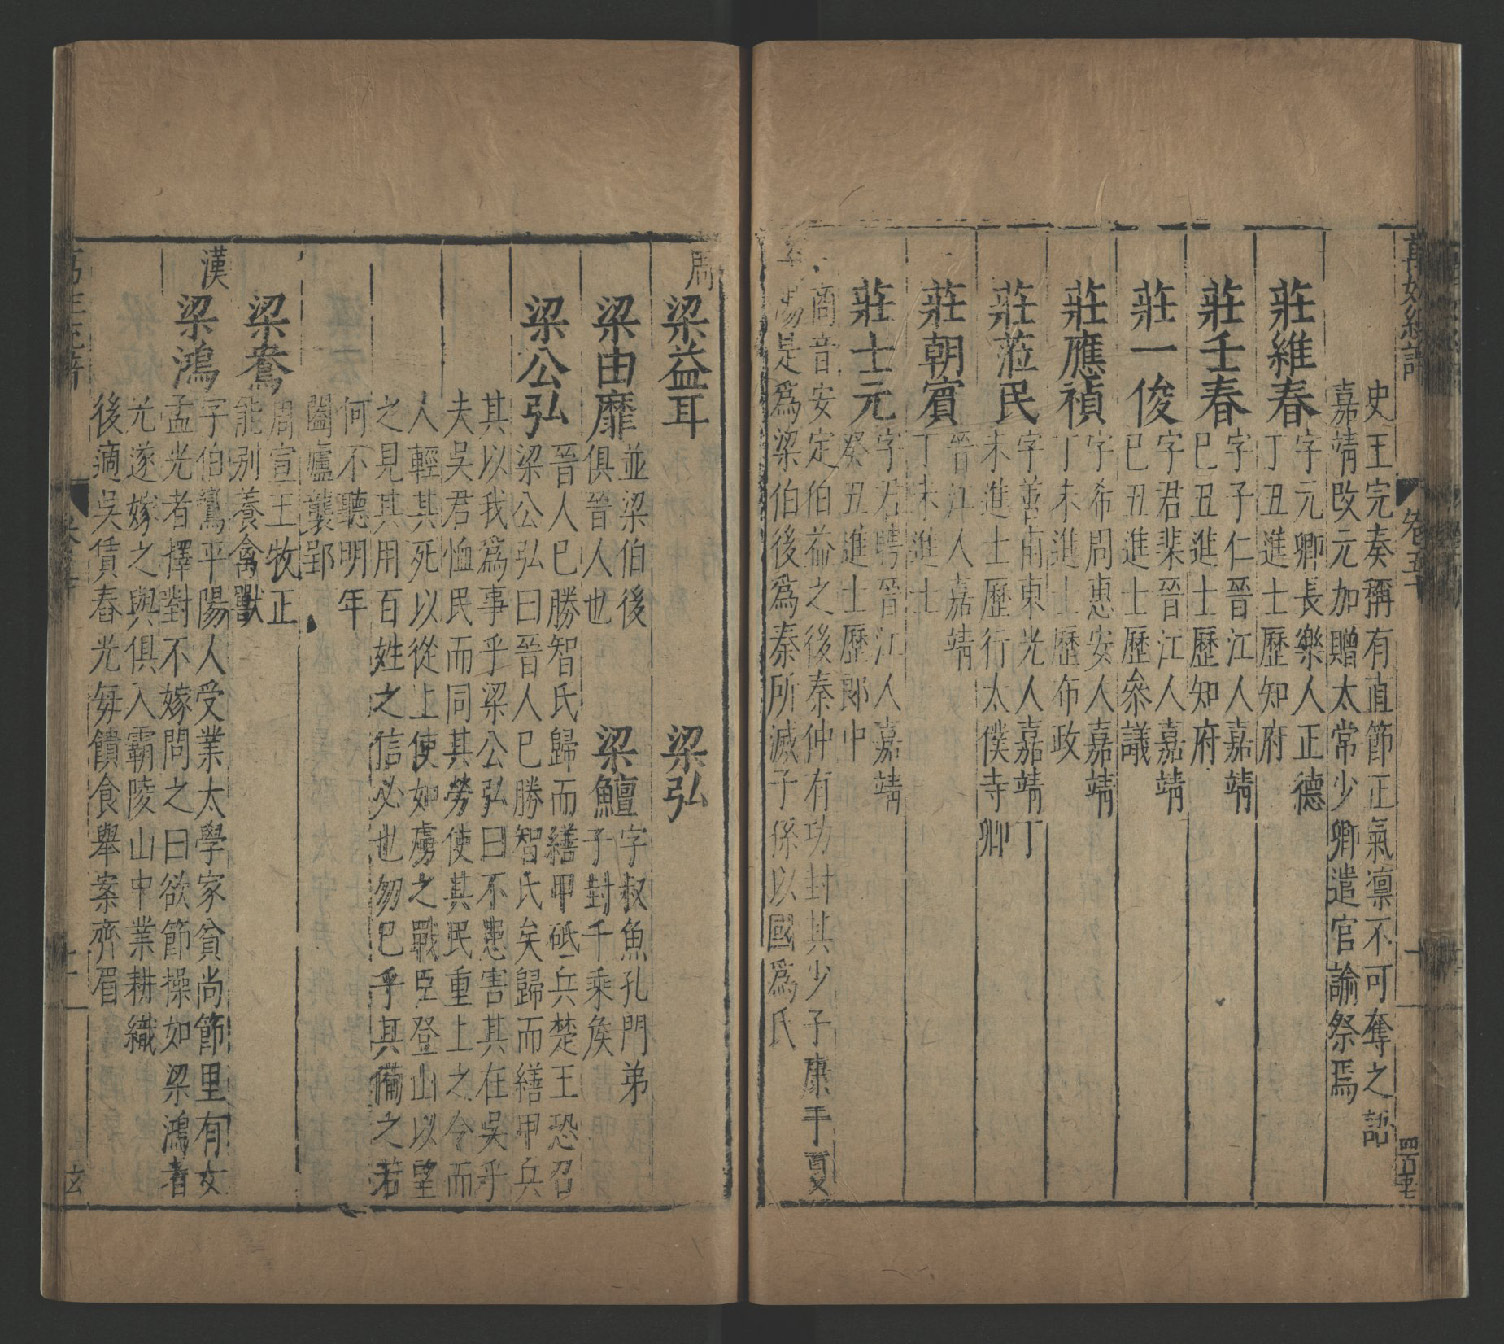 史王完奏稱有直節正氣凛不可奪之詔
嘉靖改元加贈太常少卿遣官諭祭焉
莊維春
字元卿長樂人正德
丁丑進士歷知府
莊壬春
字子仁晉江人嘉靖
巳丑進士歷知府
莊一俊
字君棐晉江人嘉靖
巳丑進士歷叅議
莊應禎
字希周惠安人嘉靖
丁未進士歷布政
莊蒞民
字善甫東光人嘉靖丁
未進士歷行太僕寺卿
莊朝賓
晉江人嘉靖
丁未進士
莊士元
字君聘晉江人嘉靖
癸丑進士歷郎中
商音安定伯益之後秦仲有功封其少子康于夏
陽是爲梁伯後爲秦所滅子孫以國爲氏
卷五十
周
梁益耳
梁弘
梁由靡
並梁伯後
俱晉人也
梁鱣
字叔魚孔門弟
子封千乘矦
梁公弘
晉人巳勝智氏歸而繕甲砥兵楚王恐召
梁公弘曰晉人巳勝智氏矣歸而繕甲兵
其以我爲事乎梁公弘曰不患害其在吳乎
夫吳君恤民而同其勞使其民重上之令而
人輕其死以從上使如虜之戰臣登山以望
之見其用百姓之信必也勿巳乎其備之若
何不聽明年
闔廬襲郢
梁鴦
周宣王牧正
能别養禽獸
漢
梁鴻
字伯鸞平陽人受業太學家貧尚節里有女
孟光者擇對不嫁問之曰欲節操如梁鴻者
光遂嫁之與俱入霸陵山中業耕織
後適吳賃舂光每饋食舉案齊眉